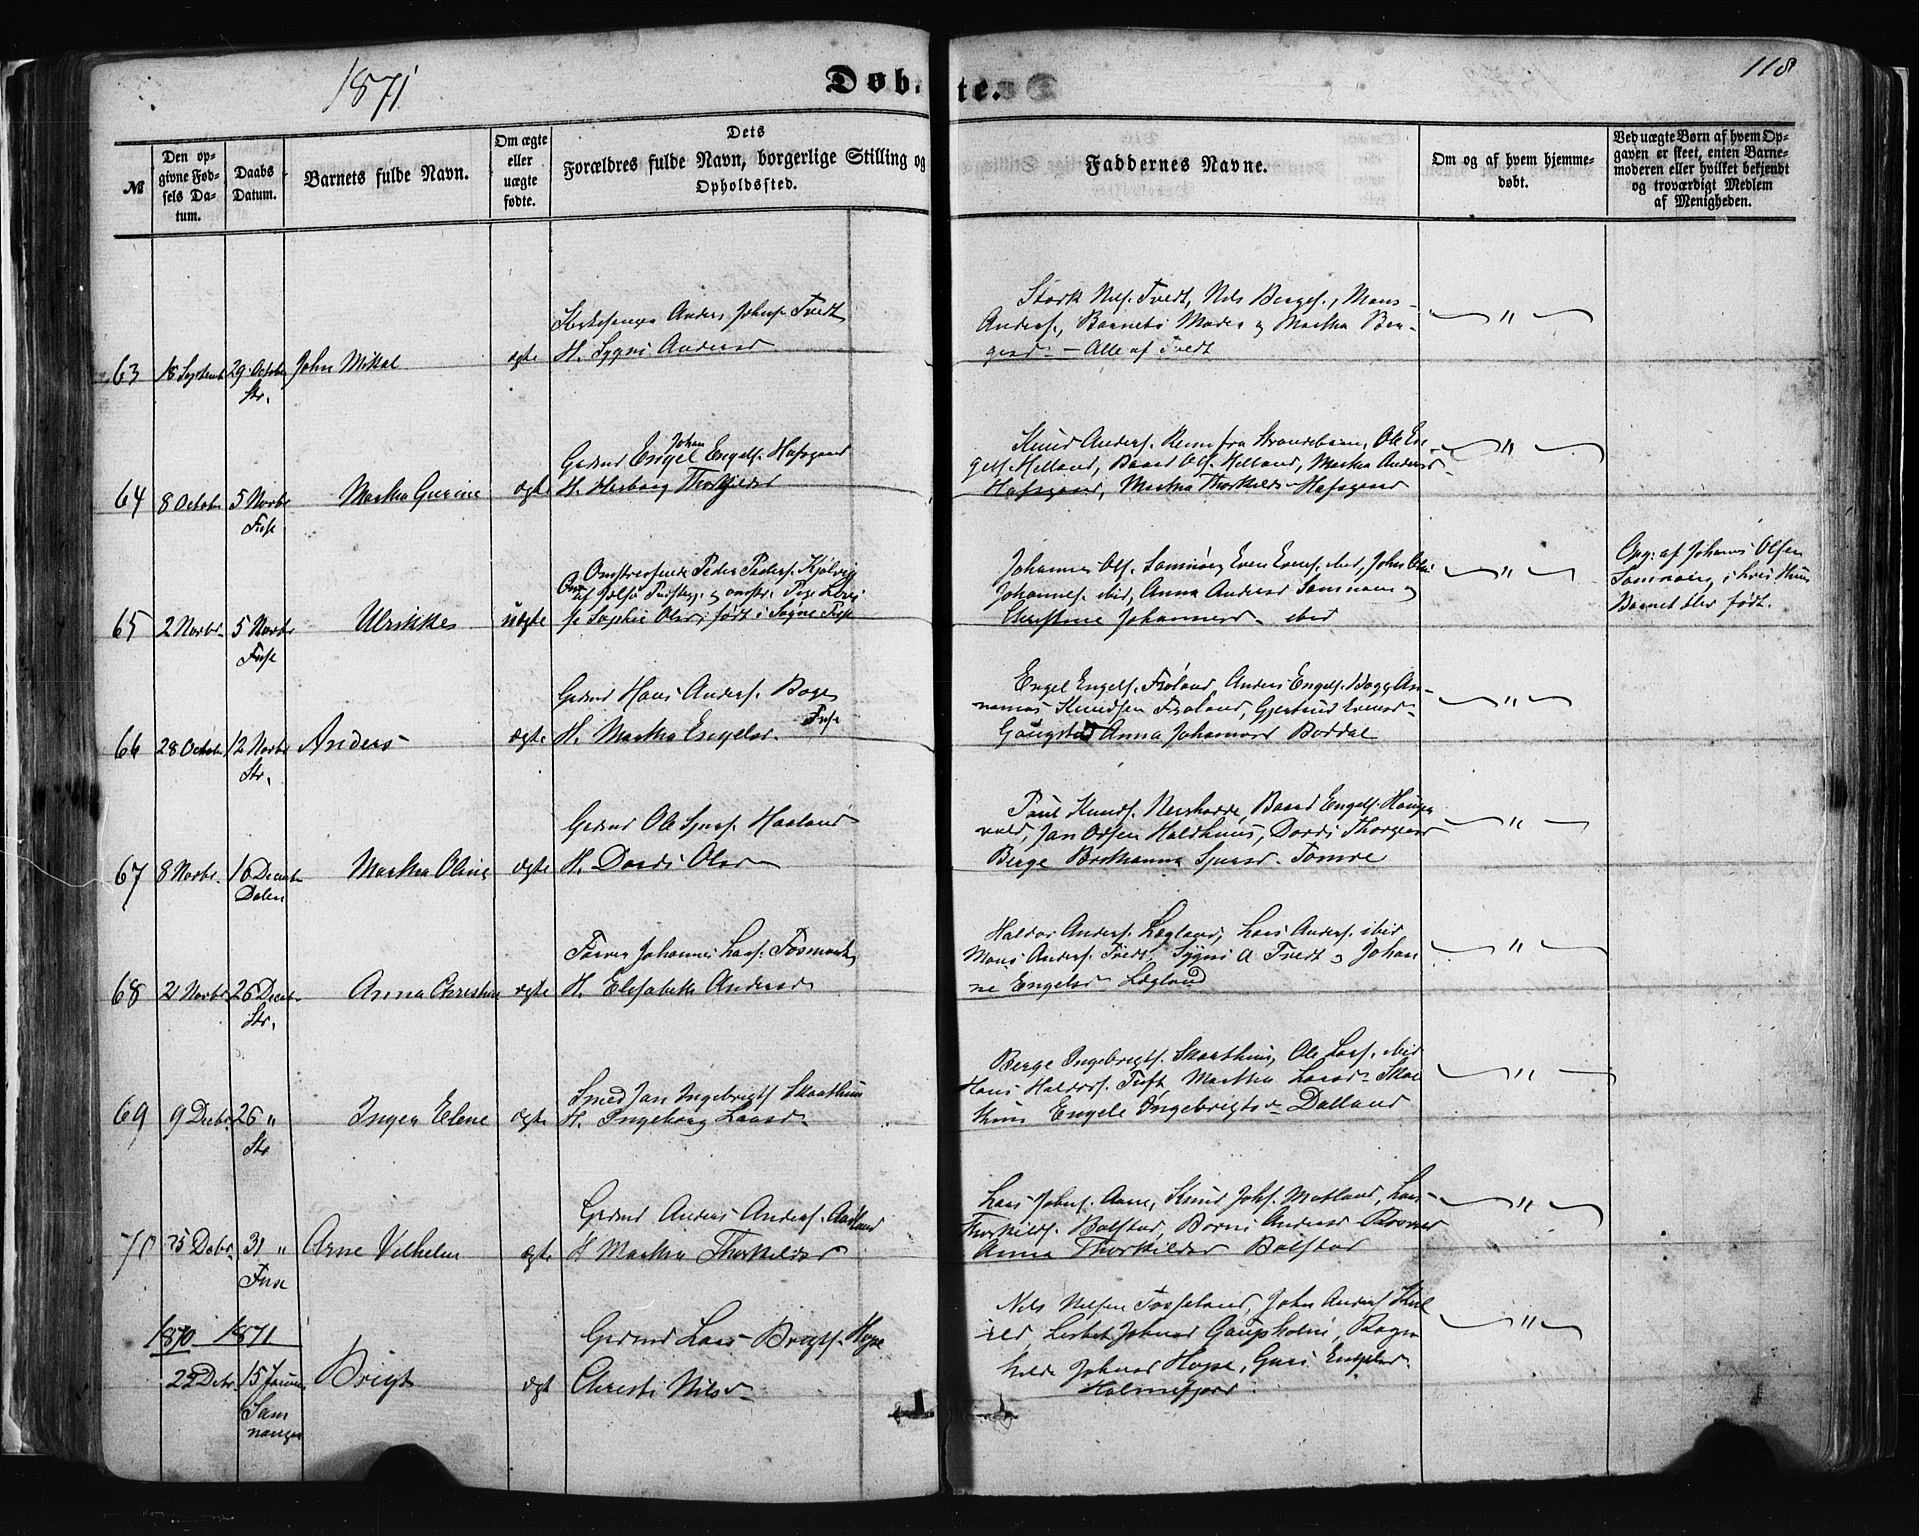 1871
Døb
te.
118
№
Den op-
givne Fød-
sels Da-
tum.
Daabs
Datum.
Barnets fulde Navn.
Om ægte
eller
uægte
fødte.
Dets
Forældres fulde Navn, borgerlige Stilling og
Opholdssted.
Faddernes Navne.
Om og af hvem hjemme-
døbt.
Ved uægte Børn af hvem Op-
gaven er skeet, enten Barne-
moderen eller hvilket bekjendt
og troværdigt Medlem
af Menigheden.
63
18 Septemb
29 Octobr
Str.
John Mikal
ægte
Kirkesanger Anders Johns. Tvedt
H. Sygni Andersd
Stork Nils. Tvedt, Nils Berges., Mons
Anders., Barnets Moder og Martha Ber-
gesd – Alle af Tvedt
"
64
8 Octobr
5 Novbr
Fuse
Martha Gurine
ægte
Johan
Gdmd Engel Engels. Hafsgaard
H. Herborg Thorkildsd
Knud Anders. fra Strandebarm, Ole En-
gels. Helland, Baard Ols. Helland, Martha Andersd
Hafsgaard, Martha Thorkildsd Hafsgaard
"
65
2 Novbr
5 Novbr
Fuse
Ulrikke
uægte
Omstreifende Peder Peders. Kjølvig
og omstr. Pige
Sophie Olsd født i Sogne Fuse
Johannes Ols. Samnøy, Even Evens. ibid, John Ole
Johannes. ibid, Anna Andersd Samnøen og
Christine Johannesd ibid
"
Opg. af Johannes Olsen
Samnøen, i hvis Huus
Barnet blev født.
66
28 Octobr
12 Novbr
Str.
Anders
ægte
Gdmd Hans Anders. Boge
Fuse
H. Martha Engelsd
Engel Engels. Frøland, Anders Engels. Bogg, An-
Knudsen Frøland, Gjertrud
Gaugstad Anna Johannesd Bøddal
"
67
8 Novbr
10 Decemb
Dalen
Martha Oline
ægte
Gdmd Ole Sjurs. Haaland
H. Dordi Olsd
Poul Knuds. Baard Engels. Hauge
vold, Jan Olsen Haldhuus, Dordi Thorgersd
Berge Brithanna Sjursd Tomre
"
68
21 Novbr
26 Decbr
Str.
Anna Christine
ægte
Farver Johannes Lars. Tosmark
H. Elisabeth Andersd
Haldor Anders. Lægland, Lars Anders. ibid
Mons Anders. Tvedt, Sygni A Tvedt og Johan
ne Engelsd Lægland
"
69
9 Decbr
26 "
Str
Inger Elene
ægte
Smed Jan Ingebrigts. Skaathuus
H. Ingeborg Larsd
Berge Ingebrigts. Skaathuus, Ole Lars. ibid
Hans Haldors. Tuft Martha Larsd Skaa
thuus Engele Ingebrigtsd Dalland
"
70
25 Decbr
31 "
Fuse
Arne Vilhelm
ægte
Gdmd Anders Anders. Aadland
H Martha Thorkildsd
Lars Johns. Aane, Knud Johs. Matland, Lars
Thorkilds. Bolstad, Børni Andersd
Anna Thorkildsd Bolstad
"
1870
1871
22 Decbr
15 Januar
Sam
nanger
Brigt
ægt
Gdmd Lars Brigts. Hope
Christi Nilsd
Nils Nilsen Tosseland, John Anders
Lisbet Johnsd Gaupholm, Ragn
hilde Johnsd Hope, Guri Engelsd
Holmefjord.
"